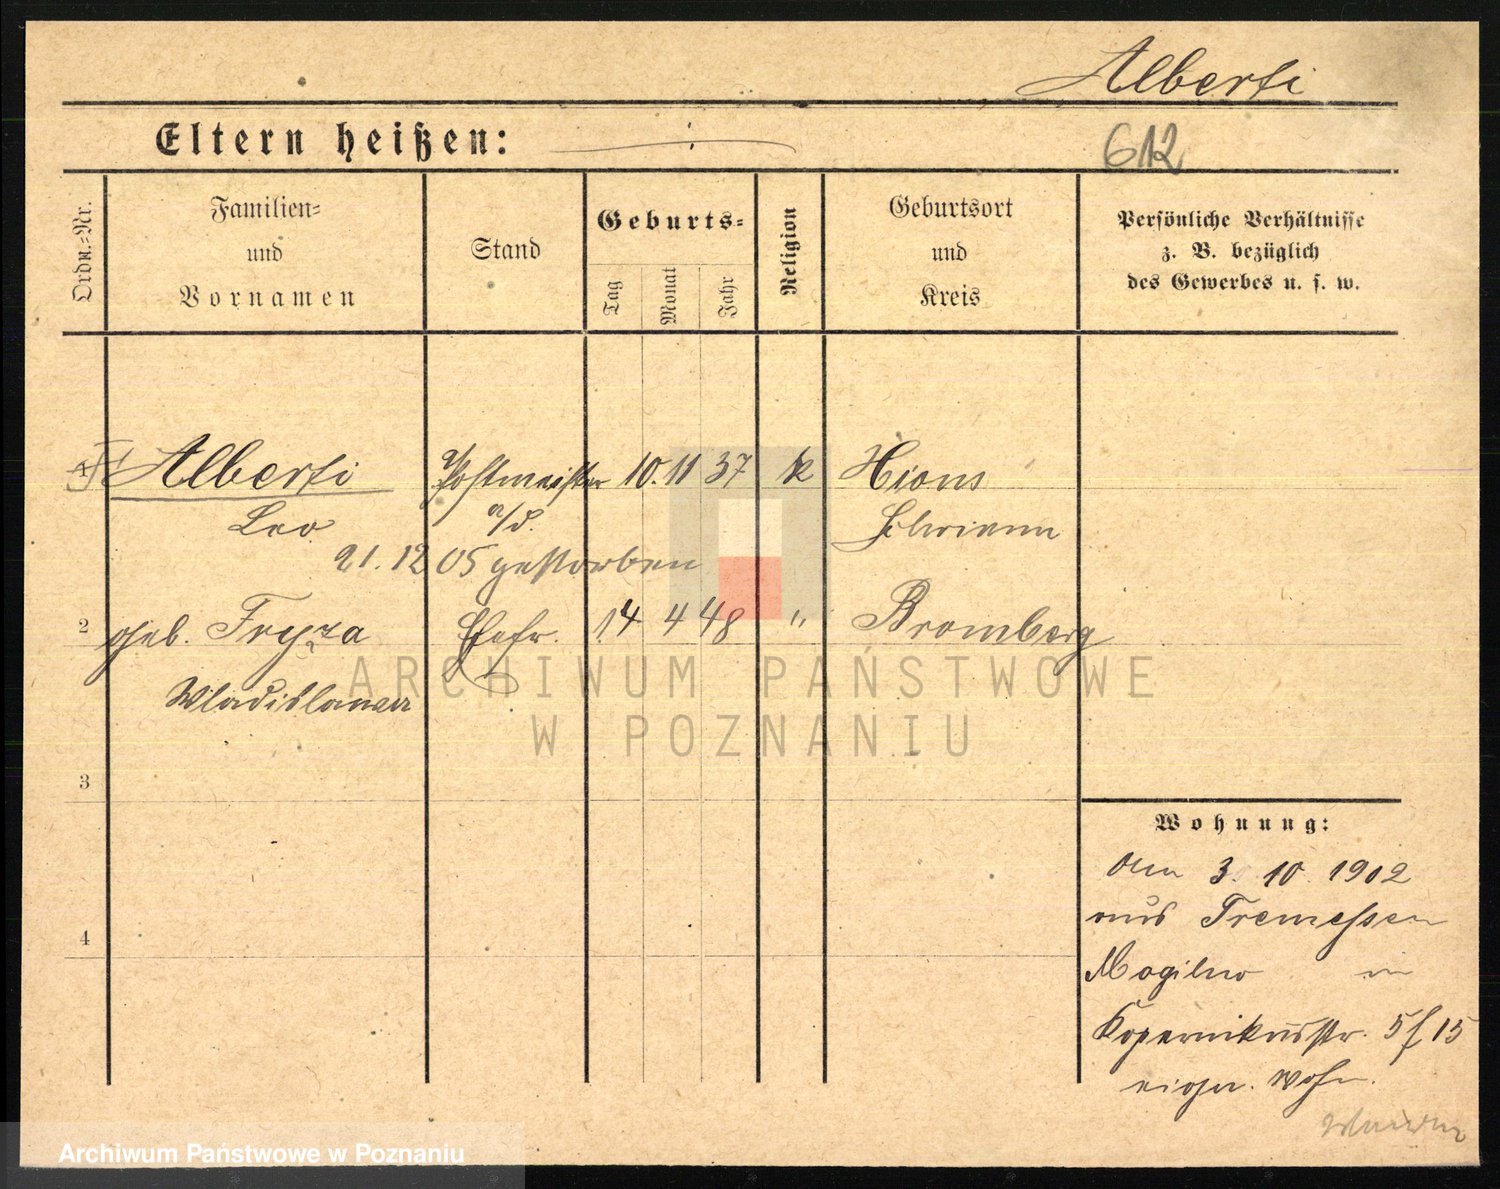 Alberti
Eltern heißen:
612
Ordn.-Nr.
Familien-
und
Vornamen
Stand
Geburts-
Tag
Monat
Jahr
Religion
Geburtsort
und
Kreis
Persönliche Verhältnisse
z. B. bezüglich
des Gewerbes u. s. w.
1 Alberti Postmeister 10. 11 37 k Xions
Leo a/d. Schrimm
21. 12 05 gestorben
2 geb. Fryza Ehefr. 14 4 48 " Bromberg
Wladislawa
ARCHIWUM PAŃSTWOWE
W POZNANIU
3
4
Wohnung:
Am 3. 10. 1902
aus Tremessen
Mogilno in
Kopernikusstr. 5 f 15
eign. Wohn.
Archiwum Państwowe w Poznaniu